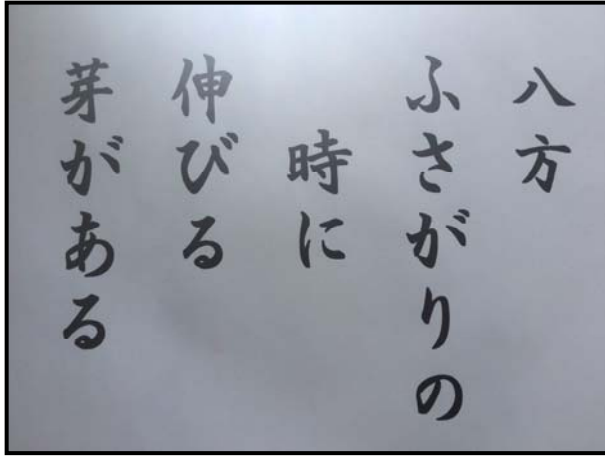 八方
ふさがりの
時に
伸びる
芽がある